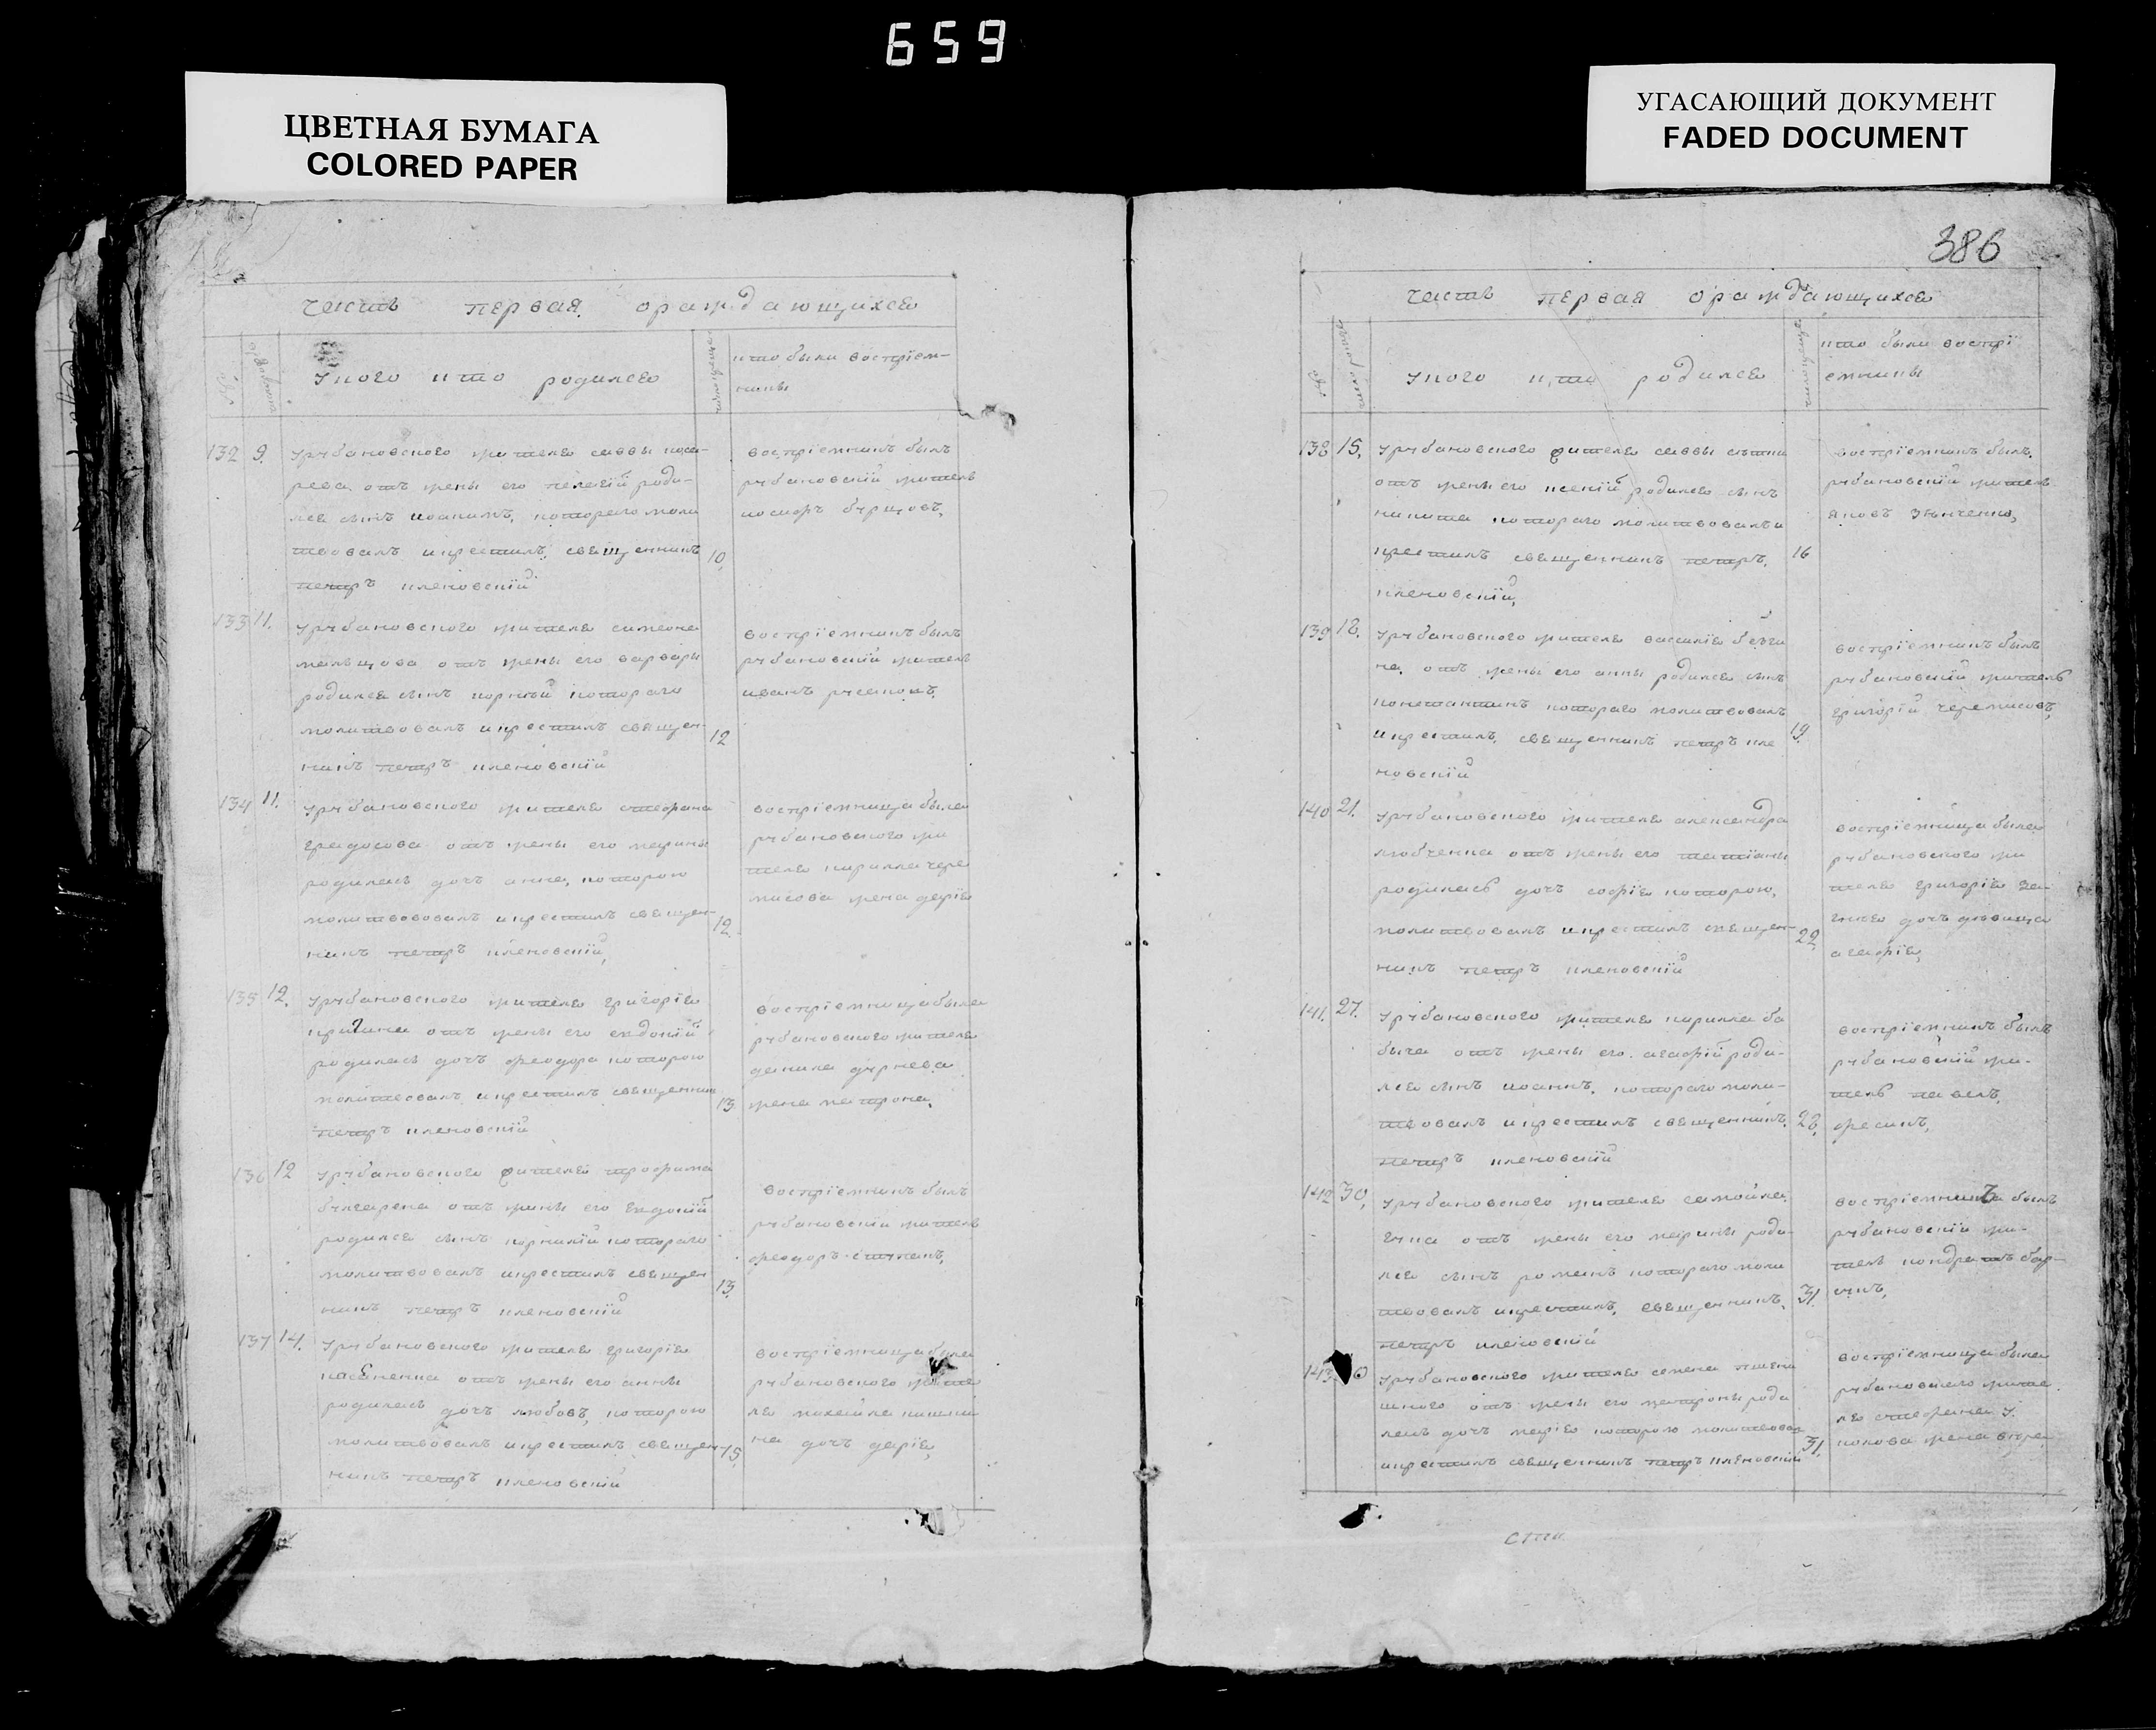 659
ЦВЕТНАЯ БУМАГА
COLORED PAPER
УГАСАЮЩИЙ ДОКУМЕНТ
FADED DOCUMENT
386
часть первая ораждающихся
№
укого кто родился
кто были воспріем-
ники
132 9. урубановского жителя саввы
отъ жены его пелагіи роди-
лся сынъ иоакимъ, котораго моли
твовалъ икрестилъ священникъ 10
петръ кленовскій
воспріемникъ былъ
рубановскій житель
иосифъ бурцовъ,
133 11. урубановского жителя симеона
мальцова отъ жены его варвары
родился сынъ корнѣй котораго
молитвовалъ икрестилъ священ- 12
никъ петръ кленовскій
воспріемникъ былъ
рубановскій житель
иванъ
134 11. урубановского жителя стефана
отъ жены его марины
родилась дочъ анна, которою
молитвововалъ икрестилъ священ- 12.
никъ петръ кленовскій,
воспріемница была
рубановского жи
теля кирилла чере
мисова жена дарія
135 12. урубановского жителя григорія
отъ жены его евдокій
родилась дочъ феодора которою
молитвовалъ икрестилъ священник 13
петръ кленовскій
воспріемница была
рубановского жителя
данила дурнева
жена матрона,
136 12 урубановского жителя трофима
отъ жены его евдокій
родился сынъ корнилій котораго
молитвовалъ икрестилъ священ 13.
никъ петръ кленовскій
воспріемникъ былъ
рубановскій житель
феодоръ
137 14. урубановского жителя григорія
отъ жены его анны
родилась дочъ любовъ, которою
молитвовалъ икрестилъ священ- 15.
никъ петръ кленовскій
воспріемница была
рубановского жите
ля
на дочъ дарія,
часть первая ораждающихся
№
укого кто родился
кто были воспрі
емники
138 15. урубановского жителя саввы
отъ жены его ксеніи родился сынъ
никита котораго молитвовалъ и
крестилъ священникъ петръ, 16
кленовскій,
воспріемникъ былъ.
рубановскій житель
яковъ зѣнченко,
139 18. урубановского жителя василія
на, отъ жены его анны родился сынъ
константинъ котораго молитвовалъ
икрестилъ, священникъ петръ кле 19.
новскій
воспріемникъ былъ
рубановскій житель
григорій черемисовъ,
140 21. урубановского жителя александра
любченка отъ жены его татіаны
родилась дочъ софія которою,
молитвовалъ икрестилъ священ- 22
никъ петръ кленовскій
воспріемница была
рубановского жи
теля григорія
дочъ дѣвица
агафія,
141. 27. урубановского жителя кирилла ба
быча отъ жены его агафій роди-
лся сынъ иоаннъ, котораго моли-
твовалъ икрестилъ священникъ. 28,
петръ кленовскій
воспріемникъ былъ
рубановскій жи-
тель павелъ,
фесикъ,
142 30, урубановского жителя самойла
отъ жены его марины роди-
лся сынъ романъ котораго моли
твовалъ икрестилъ, священникъ, 31.
петръ кленовскій
воспріемникъ былъ
рубановскій жи-
тель кондратъ
143 урубановского жителя семена пшени
шного отъ жены его матроны роди
лась дочъ марія которою молитвовал
икрестилъ священникъ петръ кленовскій 31.
воспріемница была
рубановского жите
ля стефана
жена